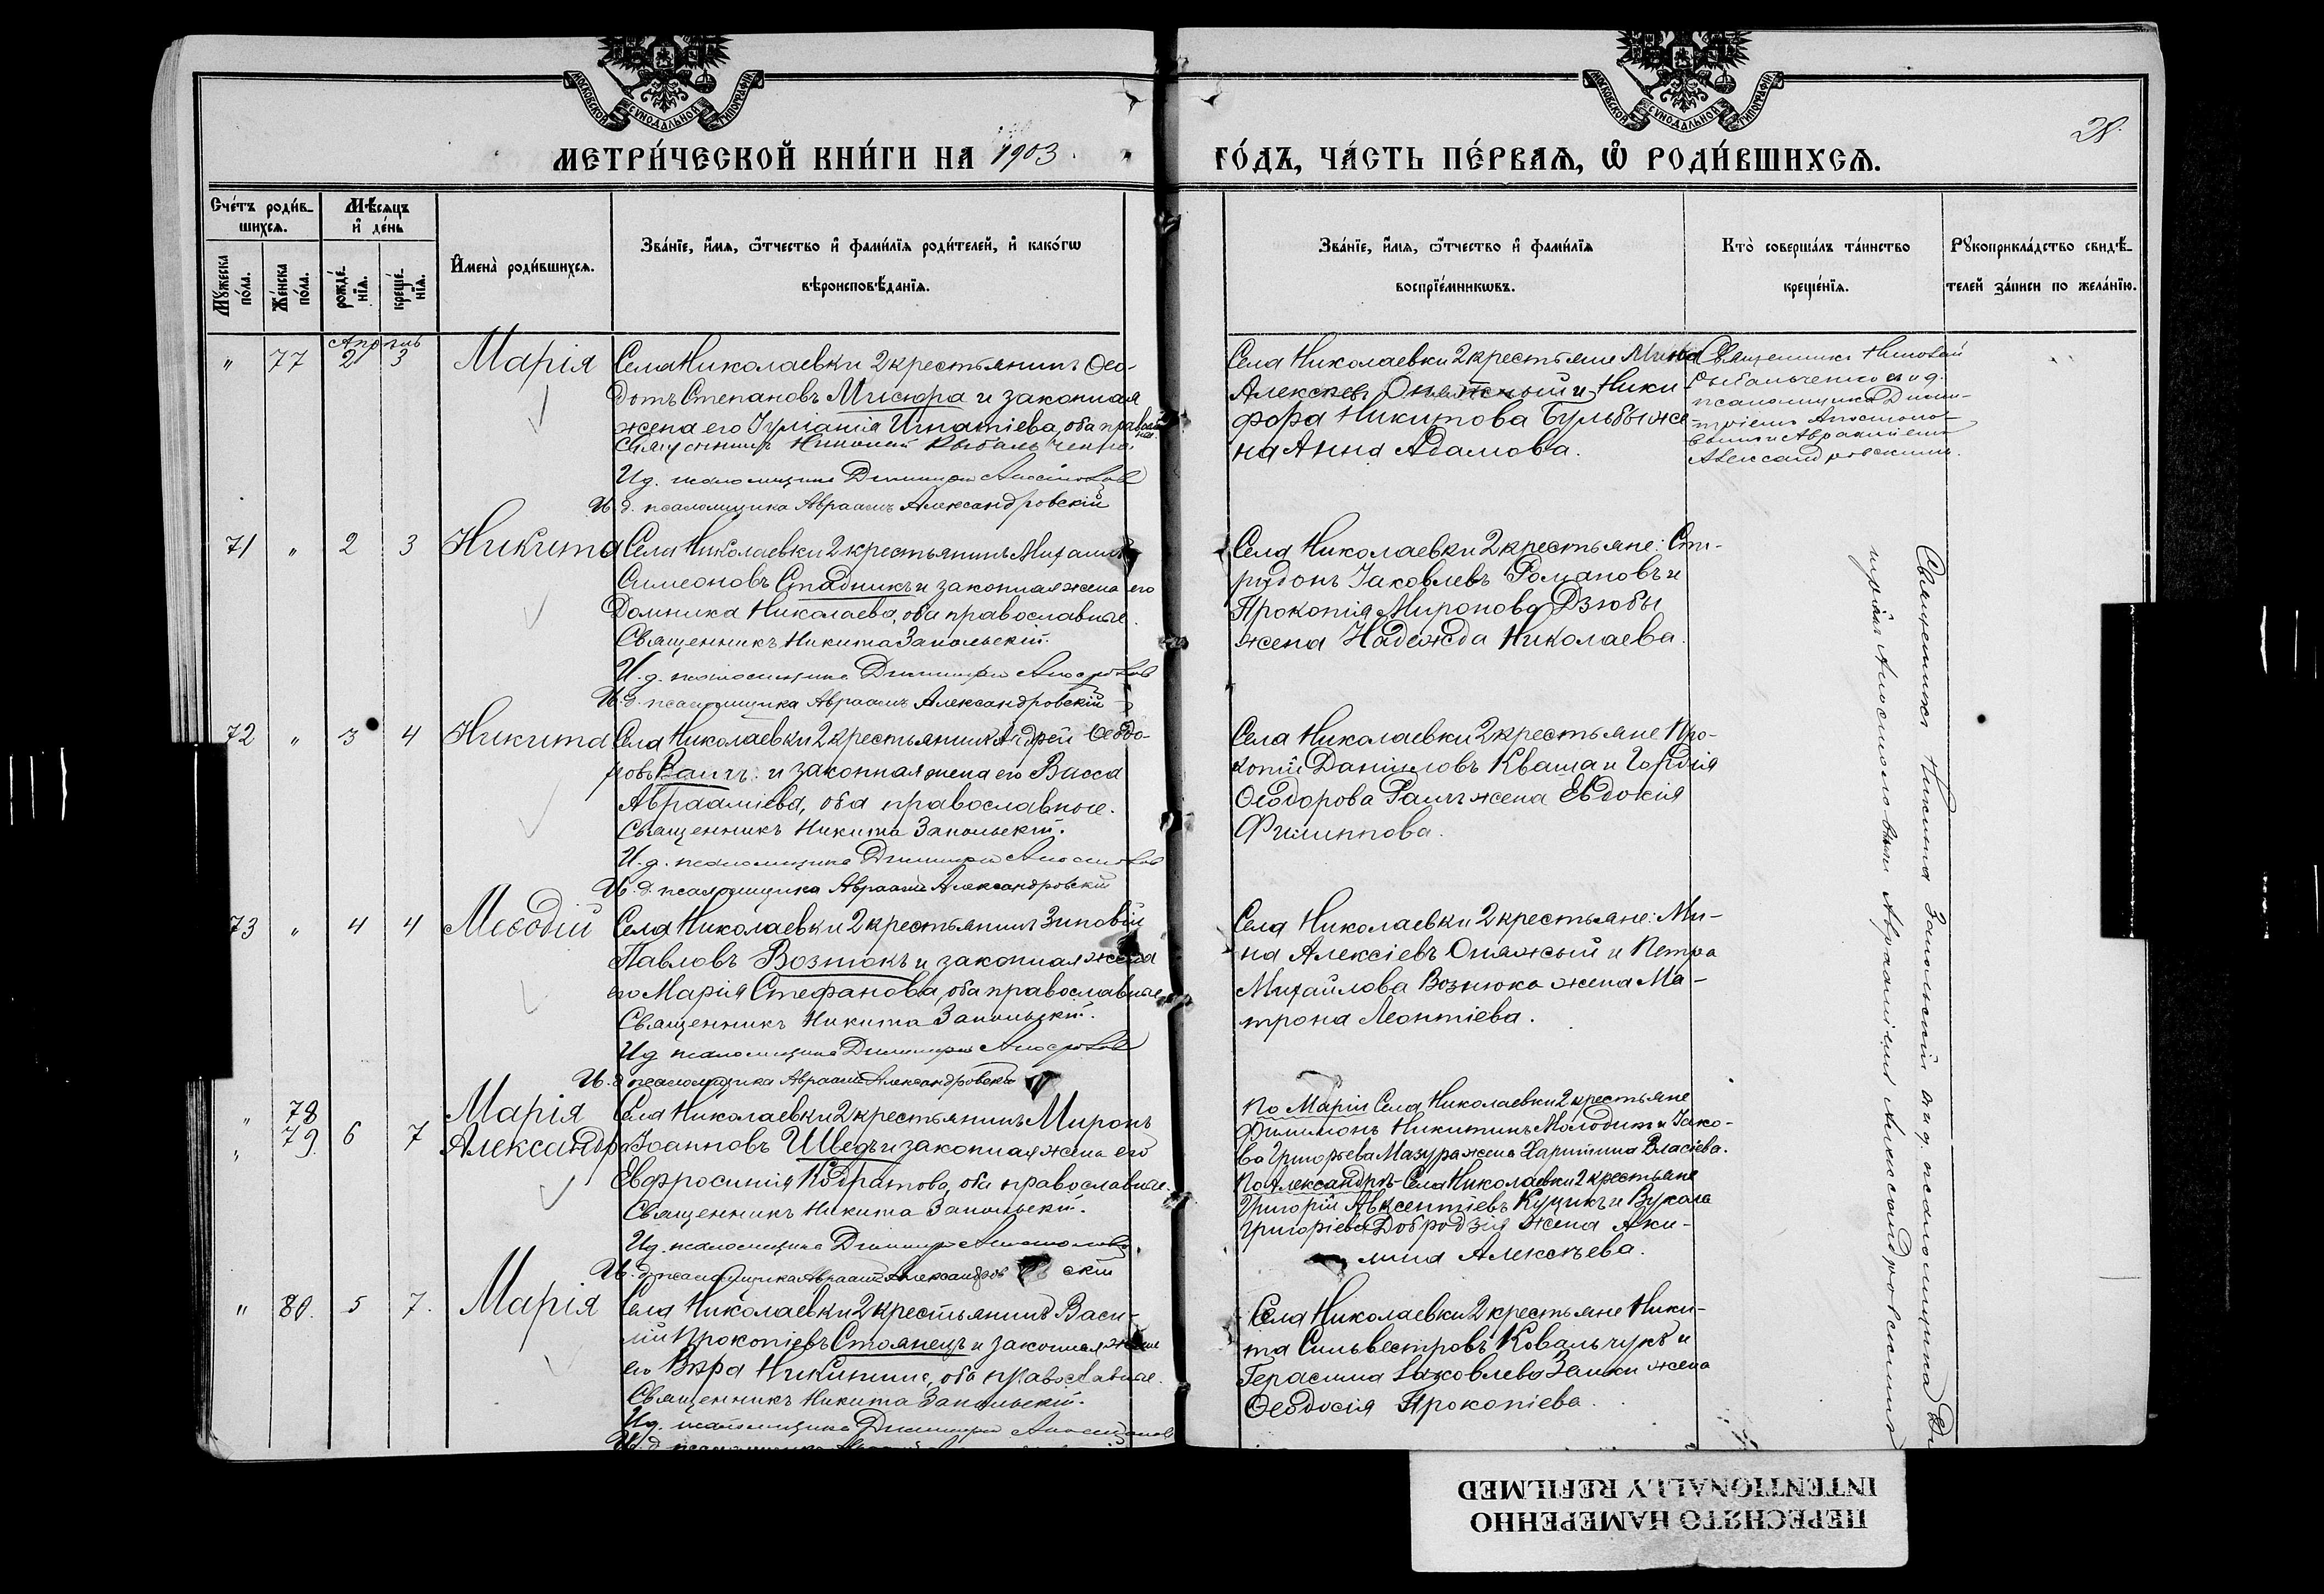 МОСКОВСКОЙ СѴНОДАЛЬНОЙ ТИПОГРАФІИ
МОСКОВСКОЙ СѴНОДАЛЬНОЙ ТИПОГРАФІИ
28.
МЕТРИ́ЧЕСКОЙ КНИ́ГИ НА 1903
ГО́ДЪ, ЧА́СТЬ ПЕ́РВАЯ, Ѡ РОДИ́ВШИХСЯ.
Сче́тъ роди́в-
шихся.
Мꙋ́жеска по́ла.
Же́нска по́ла.
Мѣ́сяцъ и де́нь
рожде́-нїя.
креще́-нїя.
Имена̀ роди́вшихся.
Зва́нїе, и́мя, ѻ́тчество и фами́лїя роди́телей, и како́гѡ
вѣроисповѣ́данїя.
Зва́нїе, и́мя, ѻ́тчество и фами́лїя
воспрїе́мникѡвъ.
Кто̀ соверша́лъ та́инство
креще́нїя.
Рꙋкоприкла́дство свидѣ́-
телей за́писи по жела́нїю.
Апрѣль
" 77 2 3 Марія Села Николаевки 2 крестьянинъ Ѳео-
дотъ Степановъ Мисюра и законная
жена его Іуліанія Игнатіева, оба православные.
Священникъ Николай Рыбальченко
И д. псаломщика Димитрій Апостоловъ
И. д. псаломщика Авраамъ Александровскій
Села Николаевки 2 крестьяне Мина
Алексѣевъ Оняжскый и Ники-
фора Никитова Бульбы же-
на Анна Адамова.
Священникъ Николай
Рыбальченко съ и д.
псаломщика Дими-
тріемъ Апостоло-
вымъ и Авраамiемъ
Александровскимъ.
71 " 2 3 Никита Села Николаевки 2 крестьянинъ Михаилъ
Симеоновъ Стадникъ и законная жена его
Домника Николаева, оба православные.
Священникъ Никита Запольскій.
И. д. псаломщика Димитрій Апостоловъ
И. д. псаломщика Авраамъ Александровскій
Села Николаевки 2 крестьяне: Спи-
ридонъ Іаковлевъ Романовъ и
Прокопія Миронова Дзюбы
жена Надежда Николаева.
72 " 3 4 Никита Села Николаевки 2 крестьянинъ Андрей Ѳеодо-
ровъ Рацъ и законная жена его Васса
Авраамiева, оба православные.
Священникъ Никита Запольскій.
И. д. псаломщика Димитрій Апостоловъ
И. д. псаломщика Авраамъ Александровскій
Села Николаевки 2 крестьяне Про-
копій Даниловъ Кваша и Гордія
Ѳеодорова Рацъ жена Евдокія
Филиппова.
73 " 4 4 Меѳодій Села Николаевки 2 крестьянинъ Зиновій
Павловъ Вознюкъ и законная жена
его Марія Стефанова, оба православные
Священникъ Никита Запольскій.
И д псаломщика Димитрій Апостоловъ
И. д псаломщика Авраамъ Александровскій
Села Николаевки 2 крестьяне: Ми-
на Алексіевъ Оняжскый и Петра
Михайлова Вознюка жена Ма-
трона Леонтіева.
" 78 Марія Села Николаевки 2 крестьянинъ Миронъ
" 79. 6 7 Александра Іоанновъ Шведъ и законная жена его
Евфросинія Кодратова, оба православные.
Священникъ Никита Запольскій.
И д. псаломщика Димитрій Апостоловъ
И. д. псаломщика Авраамъ Александровскій
По Маріи Села Николаевки 2 крестьяне
Филимонъ Никитинъ Молодитъ и Іако-
ва Григорьева Мазура жена Харитина Власіева.
По Александрѣ Села Николаевки 2 крестьяне
Григорій Авксентіевъ Куцикъ и Вукола
Григоріева Добродзія жена Аки-
лина Алексѣева.
" 80. 5 7. Марія Села Николаевки 2 крестьянинъ Васи-
лій Прокопіевъ Стоянецъ и законная жена
его Вѣра Никитина, оба православные.
Священникъ Никита Запольскій.
И д. псаломщика Димитрій Апостоловъ
И д псаломщика
Села Николаевки 2 крестьяне Ники-
та Сильвестровъ Ковальчукъ и
Герасима Іаковлева Заики жена
Ѳеодосія Прокопіева.
Священникъ Никита Запольскій съ и д. псаломщика Ди-
митріемъ Апостоловымъ и Авраамiемъ Александровскимъ
ПЕРЕСНЯТО НАМЕРЕННО
INTENTIONALLY REFILMED